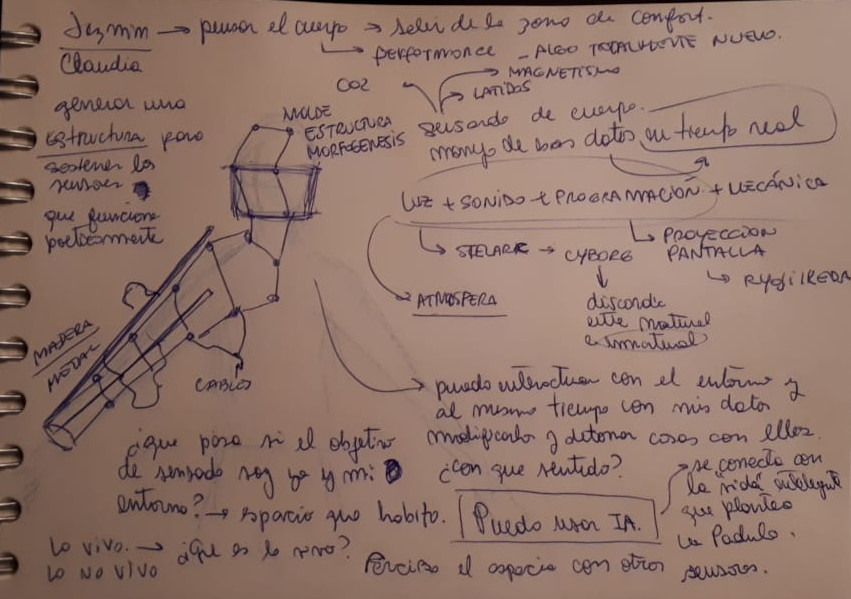 Jazmin → pensar el cuerpo → salir de la zona de confort.
Claudia
→ performance - ALGO TOTALMENTE NUEVO.
→ MAGNETISMO
→ LATIDOS
CO2
sensado de cuerpo.
manejo de esos datos en tiempo real
generar una
estructura para
sostener los
sensores
que funcione
poéticamente
MOLDE
ESTRUCTURA
MORFOGENESIS
LUZ + SONIDO + PROGRAMACIÓN + MECÁNICA
→ STELARK → CYBORG
→ PROYECCION
PANTALLA
→ RYOJI IKEDA
→ ATMOSFERA
discordia
entre natural
e innatural
MADERA
METAL
CABLES
puedo interactuar con el entorno y
al mismo tiempo con mis datos
modificarlos y detonar cosas con ellos.
¿con que sentido?
¿que pasa si el objetivo
de sensado soy yo y mi
entorno? → espacio que habito.
Puedo usar IA.
→ se conecta con
la "vida" inteligente
que plantea
La Padula.
Lo vivo. → ¿Que es lo vivo?
Lo NO VIVO
Percibo el espacio con otros sensores.